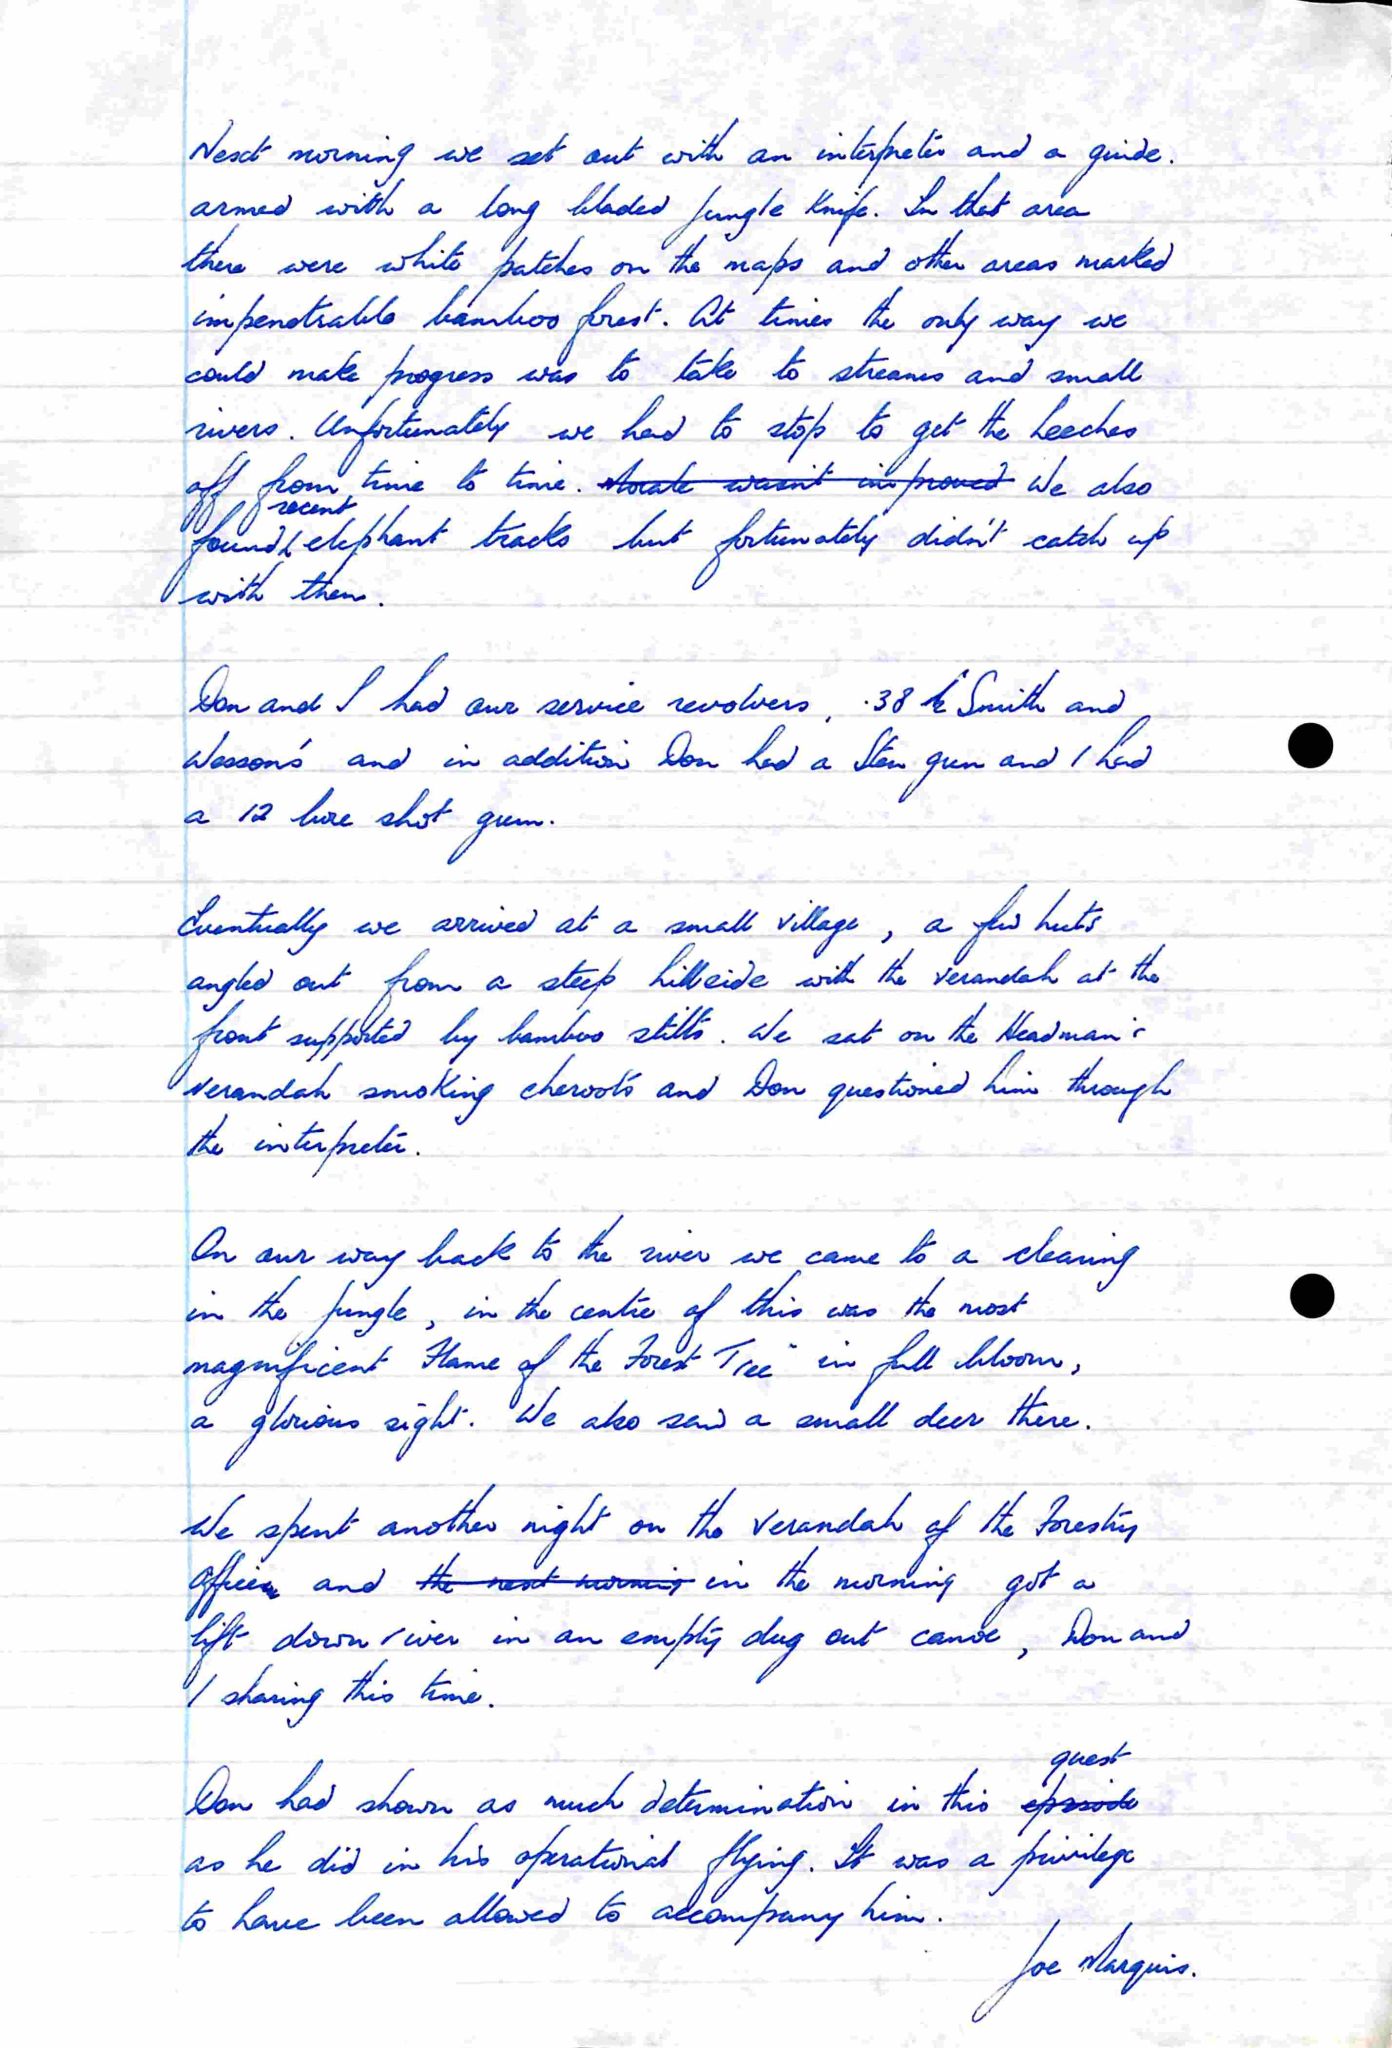 Next morning we set out with an interpreter and a guide.
armed with a long bladed jungle knife. In that area
there were white patches on the maps and other areas marked
impenetrable bamboo forest. At times the only way we
could make progress was to take to streams and small
rivers. Unfortunately we had to stop to get the leeches
off from time to time. Morale wasn't improved We also
recent
found elephant tracks but fortunately didn't catch up
with them.
Don and I had our service revolvers, .38 Smith and
Wesson's and in addition Don had a Sten gun and I had
a 12 bore shot gun.
Eventually we arrived at a small village, a few huts
angled out from a steep hillside with the verandah at the
front supported by bamboo stilts. We sat on the Headman's
verandah smoking cheroots and Don questioned him through
the interpreter.
On our way back to the river we came to a clearing
in the jungle, in the centre of this was the most
magnificent Flame of the Forest Tree" in full bloom,
a glorious sight. We also saw a small deer there.
We spent another night on the verandah of the Forestry
Officer and the next morning in the morning got a
lift down river in an empty dug out canoe, Don and
I sharing this time.
quest
Don had shown as much determination in this episode
as he did in his operational flying. It was a privilege
to have been allowed to accompany him.
Joe Marquis.